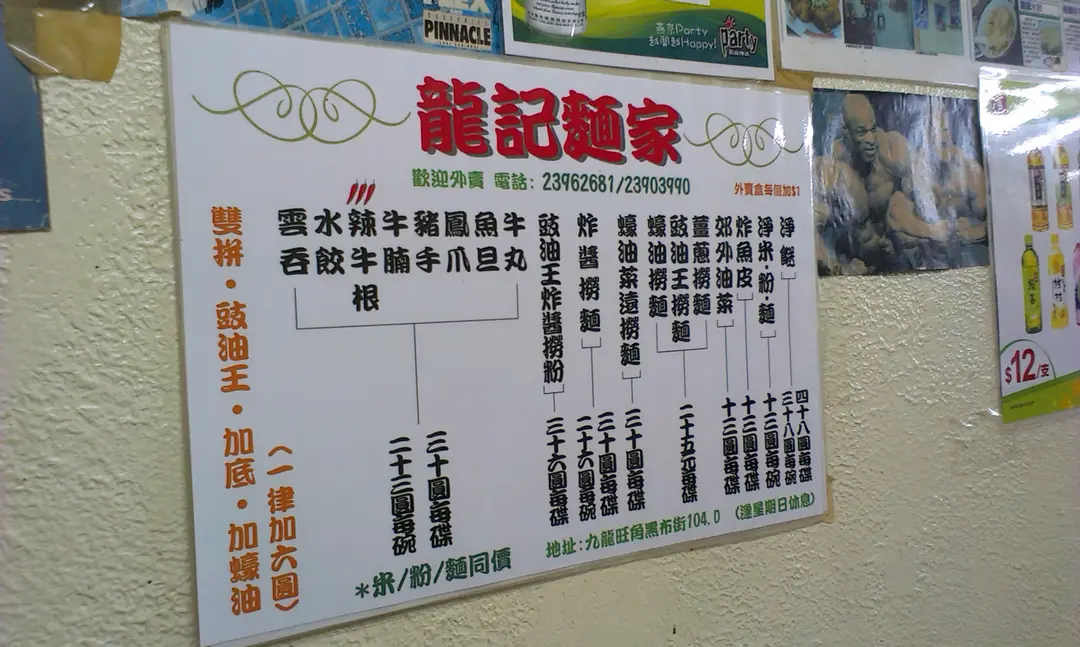 PINNACLE
燕京Party
越開越Happy!
party
龍記麵家
歡迎外賣 電話: 23962681/23903990
外賣盒每個加$1
淨餸
四十八圓每碟
三十八圓每碗
淨米·粉·麵
十二圓每碗
炸魚皮
十三圓每碟
郊外油菜
十三圓每碟
薑蔥撈麵
豉油王撈麵
蠔油撈麵
二十五元每碟
蠔油菜遠撈麵
三十圓每碟
炸醬撈麵
三十圓每碟
二十六圓每碗
豉油王炸醬撈粉
三十六圓每碟
牛丸
魚旦
鳳爪
豬手
牛腩
辣牛根
水餃
雲吞
三十圓每碟
二十三圓每碗
雙拼·豉油王·加底·加蠔油
(一律加六圓)
*米/粉/麵同價
地址:九龍旺角黑布街104.D (逢星期日休息)
$12/支